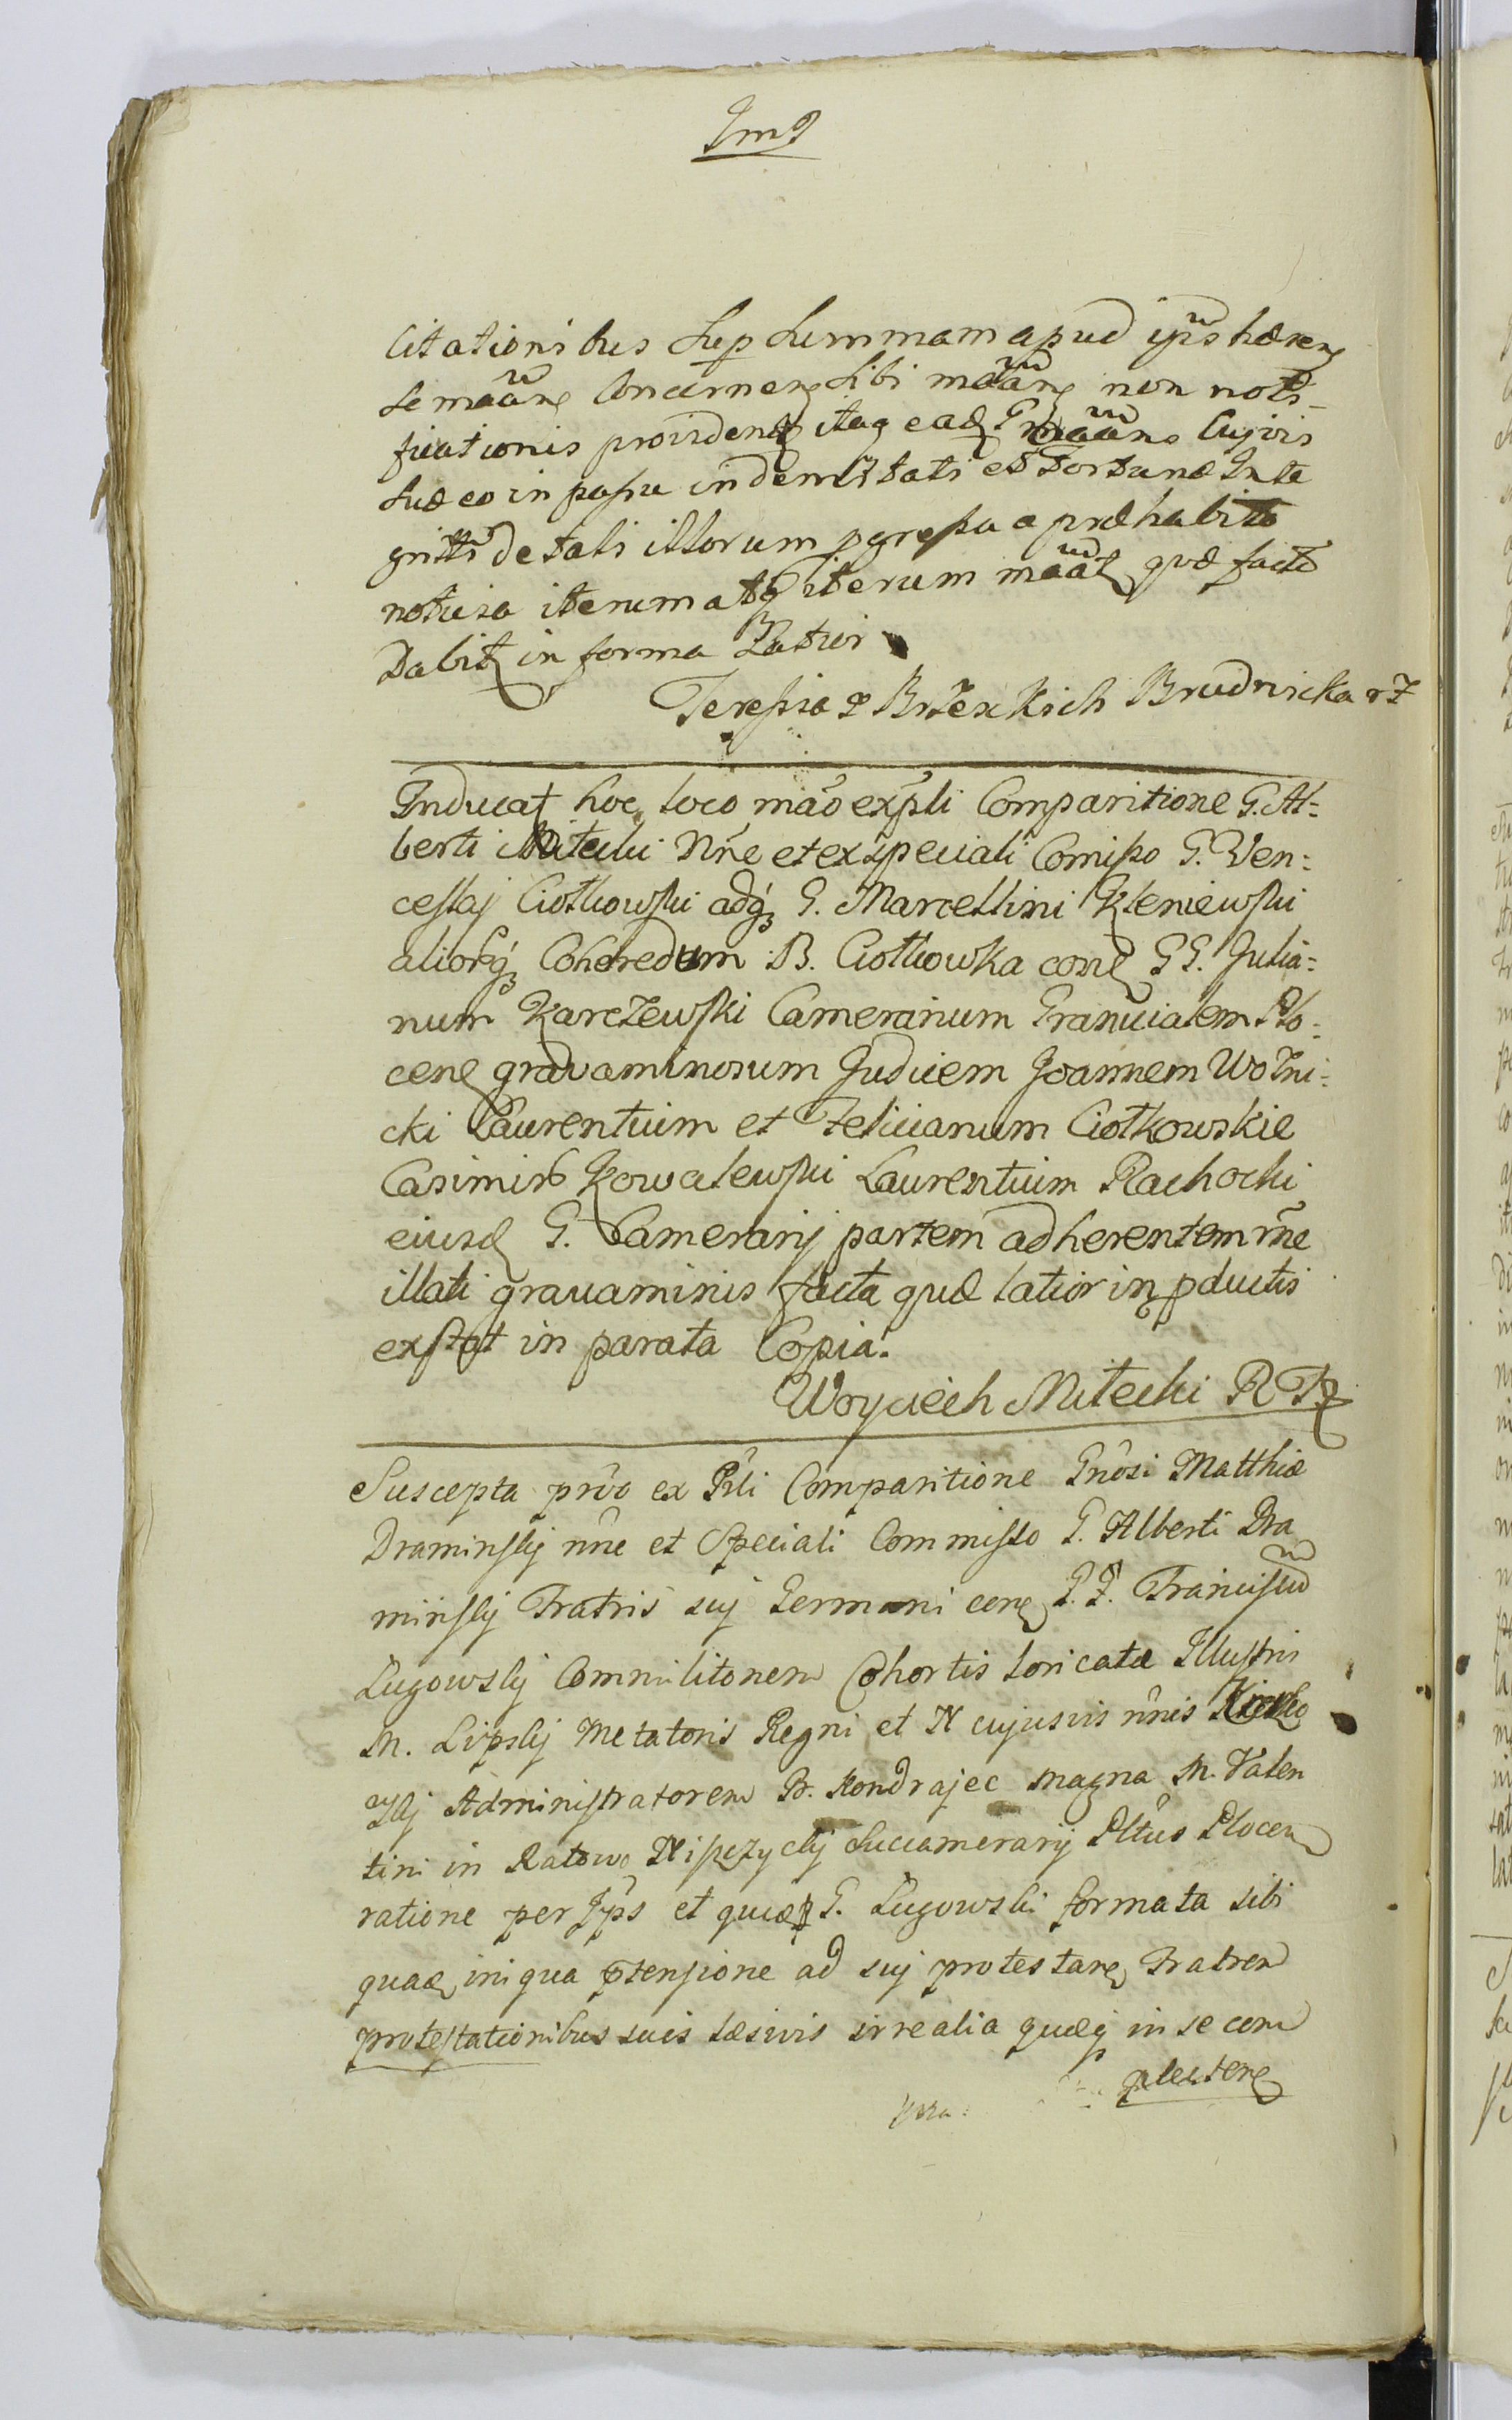 Citationibus sup summam apud ip̃s hæren
se mãan concernen sibi mãan non noti-
ficationis providen itaq ead G mãans Cujvis
suæ eo in passu indemnitati et Fortunæ Inte
gritti de tali illorum pgressu a præhabito
notitia iterum atq iterum mãat quæ facto
Dabit in forma Latior
Teressia z Brzeskich Brudnicka
Inducat hoc loco mão exp̃li Comparitione G. Al=
berti Mitecki Nñe et ex speciali Comisso G. Ven=
ceslaj Ciołkowski adq3 G. Marcellini Kleniewski
aliorq3 Coheredum B. Ciołkowka con̄ GG. Julia=
num Karczewski Camerarium Granicialem Plo=
cen gravaminorum Judicem Joannem Wozni=
cki Laurentium et Felicianum Ciołkowskie
Casimir Kowalewski Laurentium Rachocki
eiusd G. Camerarij partem adherentem rñe
illati gravaminis facta quæ latior in pductis
exstat in parata Copia.
Woyciech Mitecki
Suscepta prõo ex Pr̃li Comparitione Gnõsi Matthiæ
Draminskj nñe et Speciali Commisso G. Alberti Dra
minskj Fratris suj Germani con G. F. Francisũ
Lugowskj Commilitonem Cohortis loricatæ Illustris
M. Lipskj Metatoris Regni et N cujusvis nñis
Administratorem B. Kondrajec magna M. Valen
tini in Ratowo Nisczyckj Succamerarij Pltũs Plocen
ratione per Ip̃s et quidē G. Lugowski formata sibi
quad iniqua ptensione ad suj protestan Fratrem
protestationibus suis læsivis irrealia quæq in se com
plecten